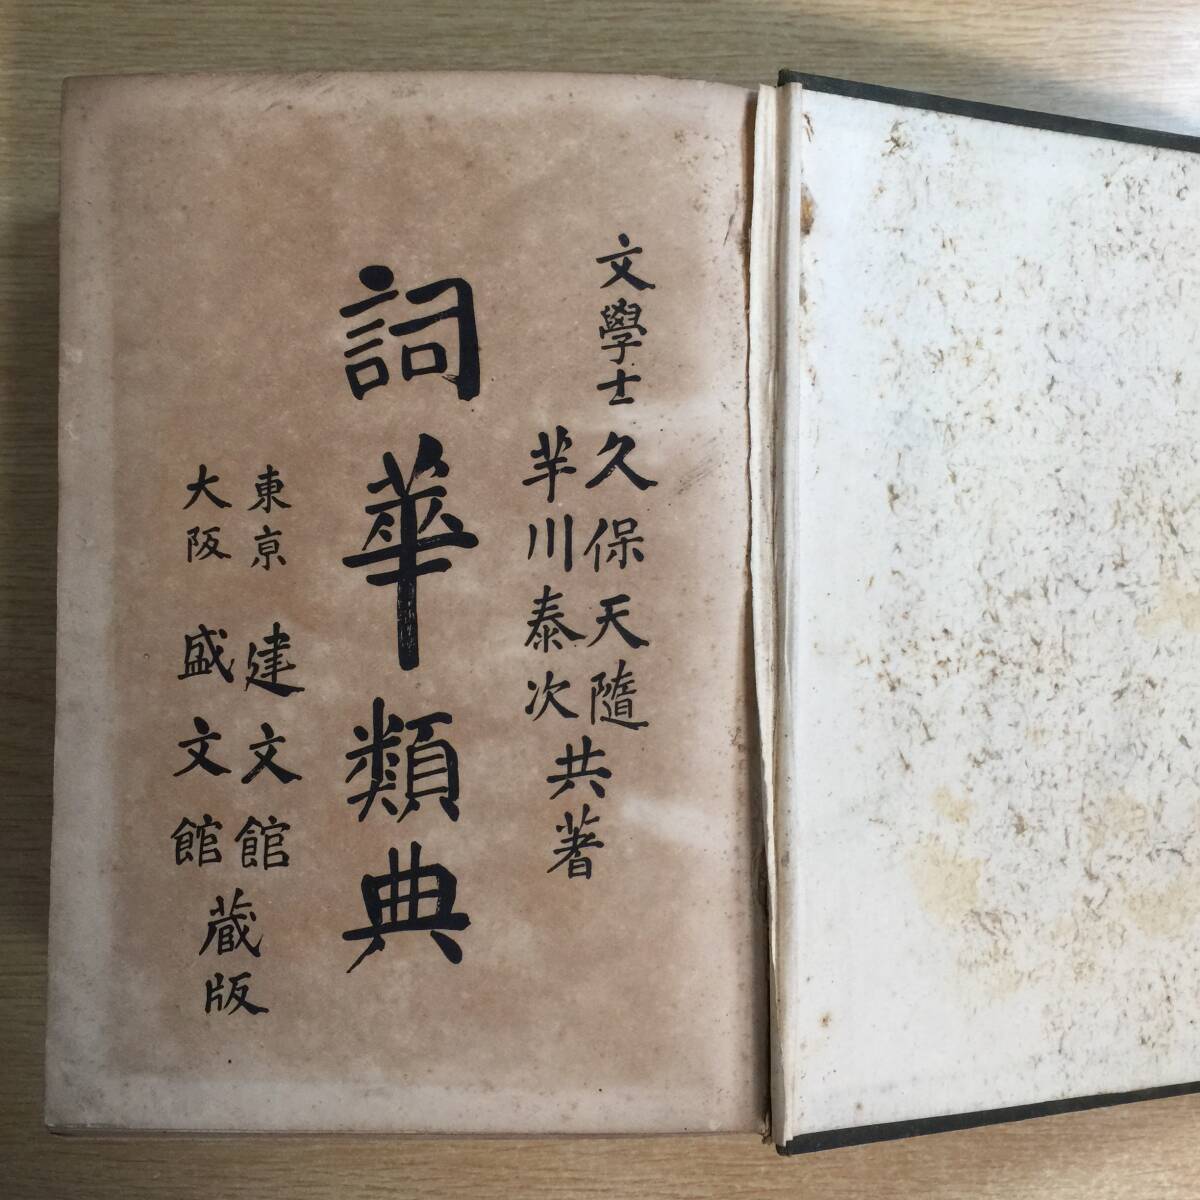 文學士 久保天隨
芈川泰次
共著
詞華類典
東京 建文館
大阪 盛文館
蔵版